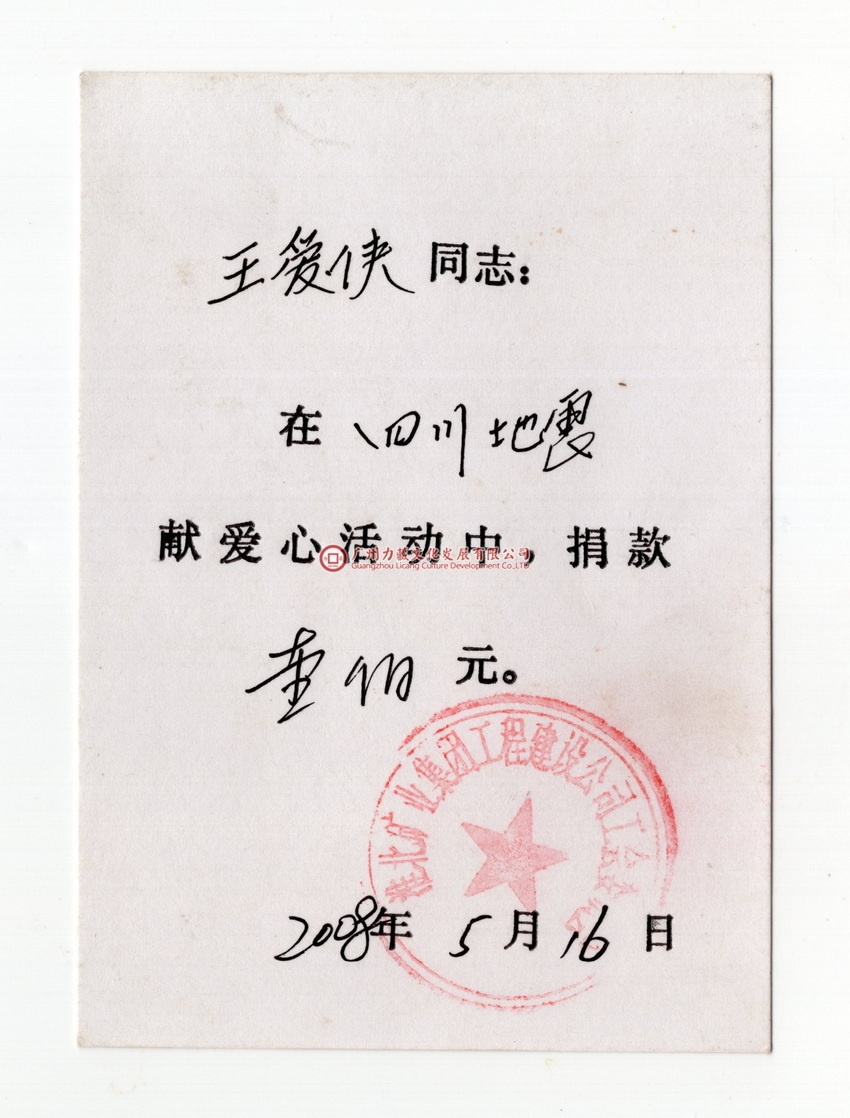 王爱侠同志：
在四川地震
献爱心活动中，捐款
广州力藏文化发展有限公司
Guangzhou Licang Culture Development Co.,LTD
壹佰元。
淮北矿业集团工程建设公司工会
2008年5月16日